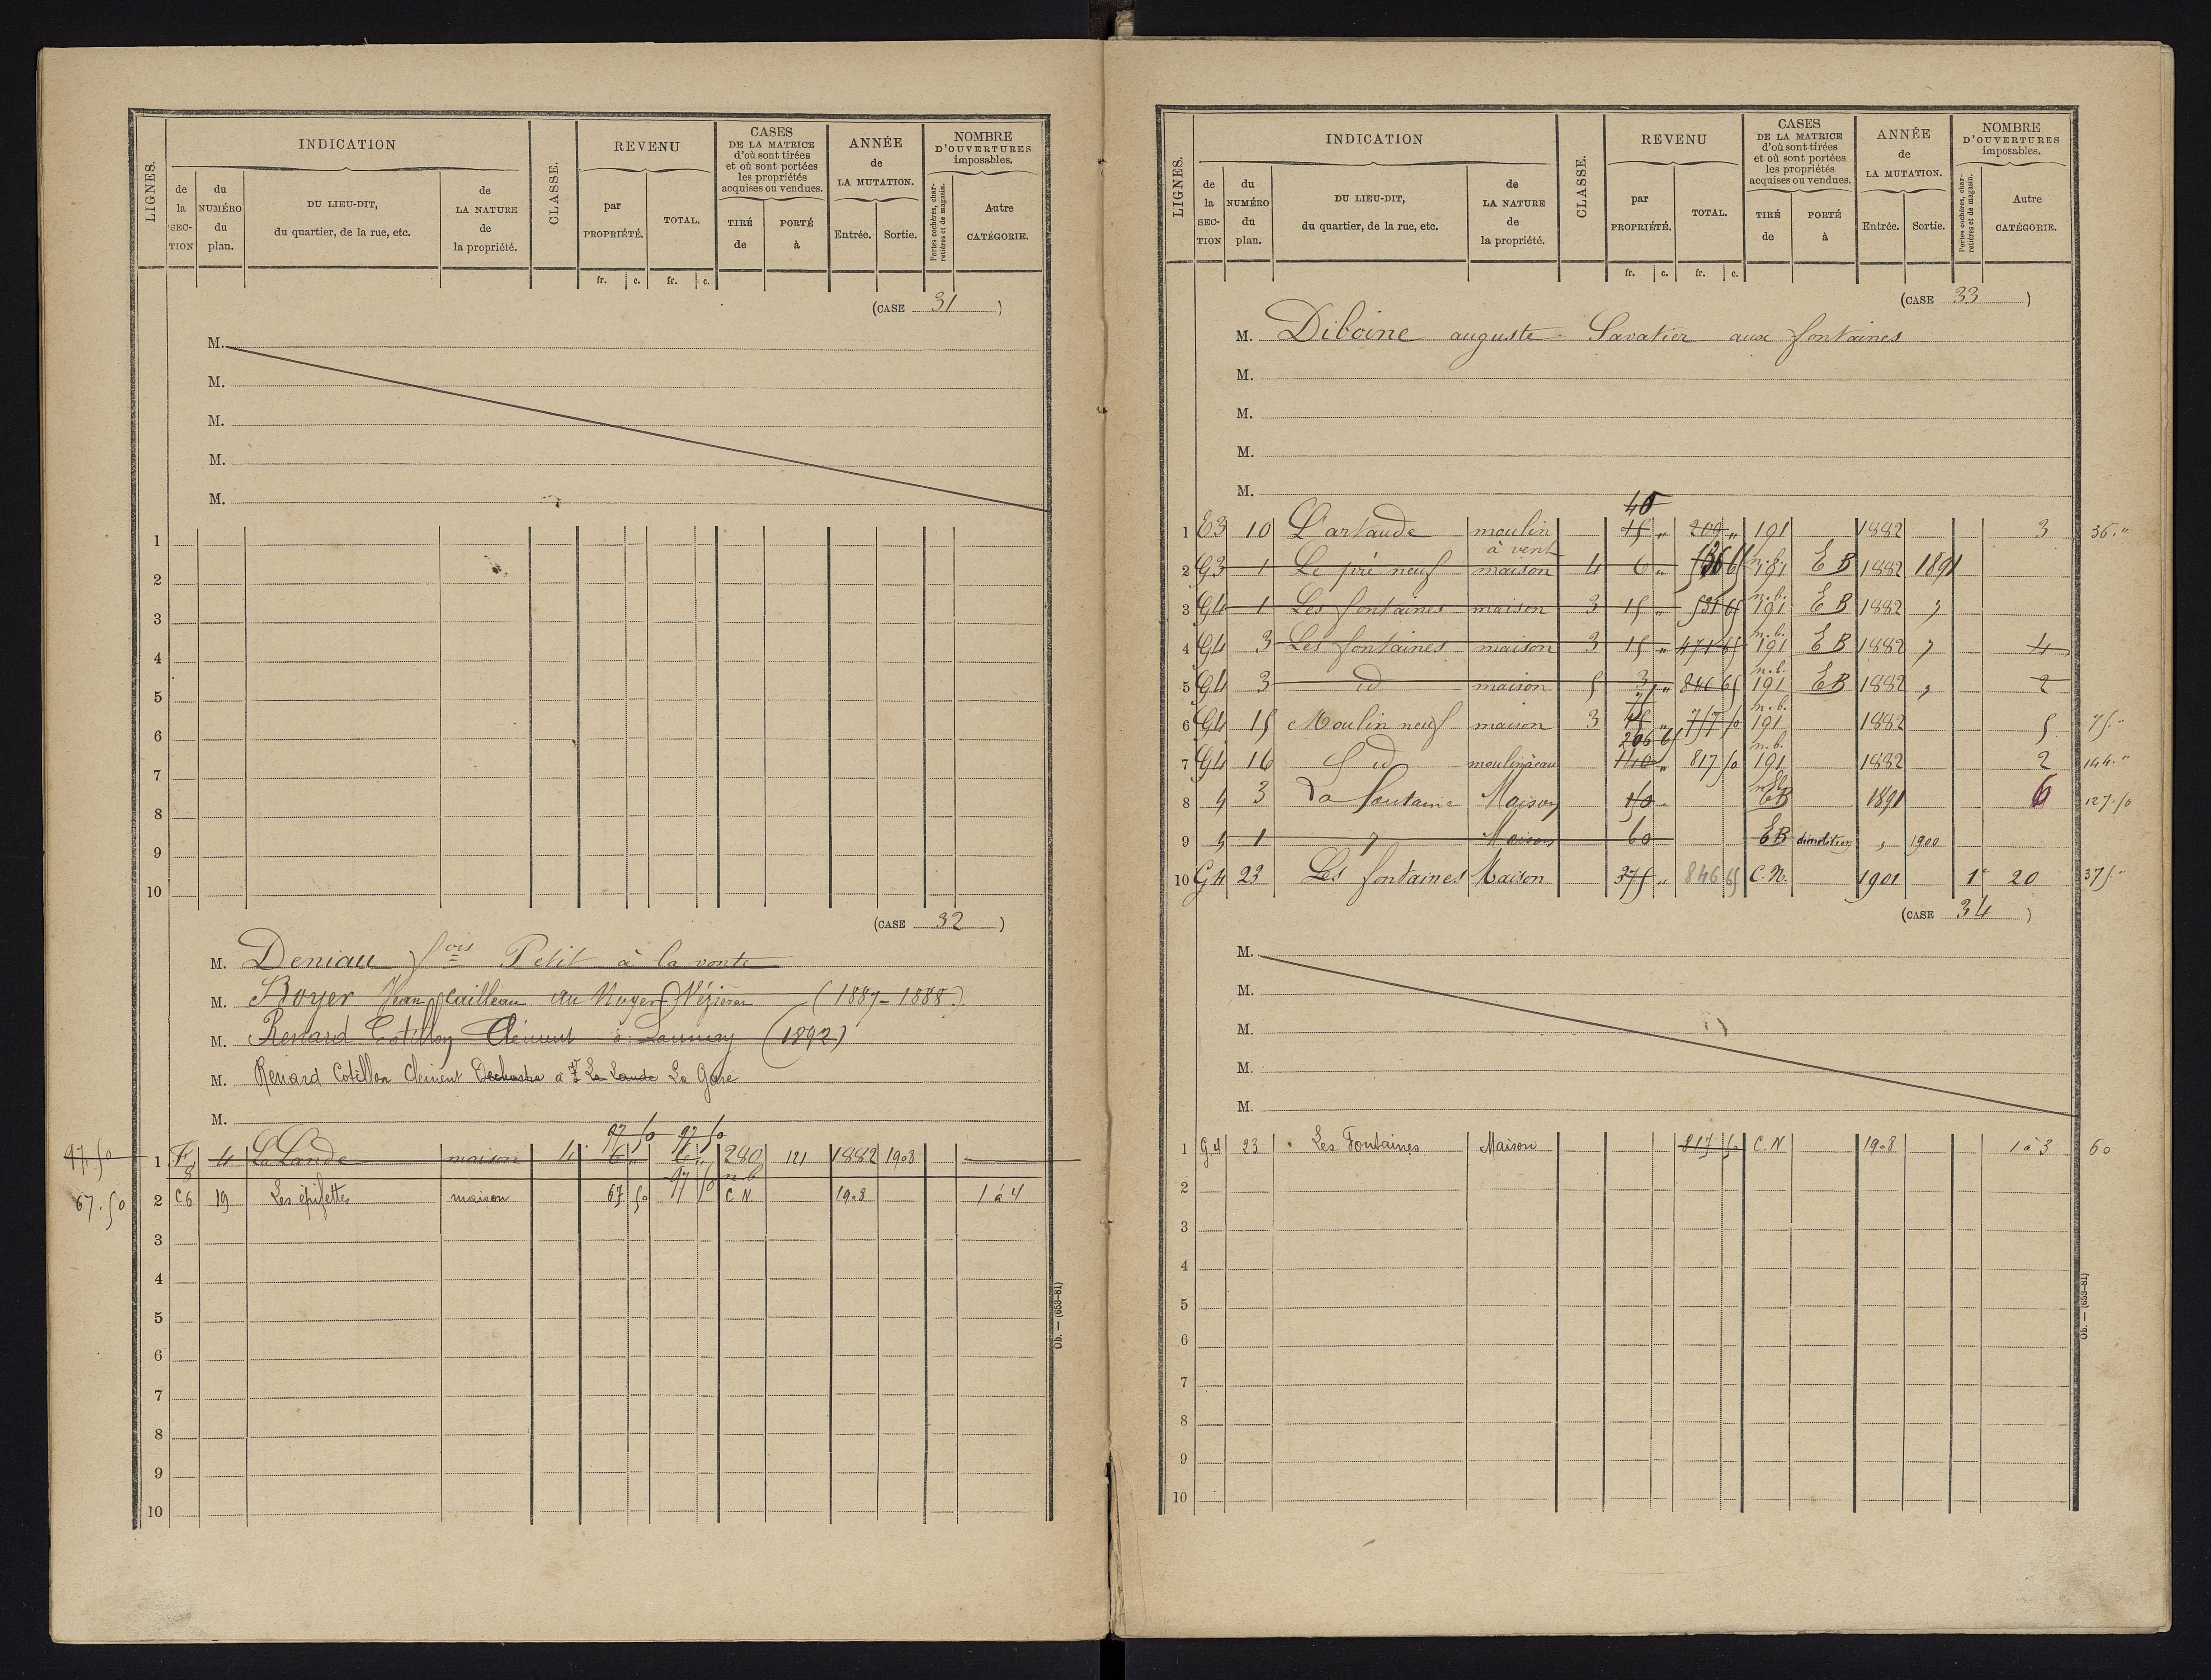 LIGNES.
INDICATION
de la SECTION
du NUMÉRO du plan.
DU LIEU-DIT, du quartier, de la rue, etc.
de LA NATURE de la propriété.
CLASSE.
REVENU
par PROPRIÉTÉ.
TOTAL.
fr. c. fr. c.
CASES DE LA MATRICE d'où sont tirées et où sont portées les propriétés acquises ou vendues.
TIRÉ de
PORTÉ à
ANNÉE de LA MUTATION.
Entrée. Sortie.
NOMBRE D'OUVERTURES imposables.
Portes cochères, charretières et de magasin.
Autre CATÉGORIE.
(CASE 31)
M.
M.
M.
M.
M.
1
2
3
4
5
6
7
8
9
10
(CASE 32)
M. Deniau fois Petit à la vonte
M. Boyer Jean cailleau au Noyer Mézières (1887-1888)
M. Renard Cotillon Clément à Launay (1892)
M. Renard Cotillon Clément à La Lande La Gare
M.
97 50 97 50
97.50 1 F 8 4 La Lande maison 4 6 " 6 " 280 n.b 121 1882 1903
67.50 2 C6 19 Les épifettes maison 67 50 97 50 C N 1903 1 à 4
3
4
5
6
7
8
9
10
Ob. — (653-81)
LIGNES.
INDICATION
de la SECTION
du NUMÉRO du plan.
DU LIEU-DIT, du quartier, de la rue, etc.
de LA NATURE de la propriété.
CLASSE.
REVENU
par PROPRIÉTÉ.
TOTAL.
fr. c. fr. c.
CASES DE LA MATRICE d'où sont tirées et où sont portées les propriétés acquises ou vendues.
TIRÉ de
PORTÉ à
ANNÉE de LA MUTATION.
Entrée. Sortie.
NOMBRE D'OUVERTURES imposables.
Portes cochères, charretières et de magasin.
Autre CATÉGORIE.
(CASE 33)
M. Diboine auguste Savatier aux fontaines
M.
M.
M.
M.
40
1 E3 10 L'artaude moulin à vent 45 " 209 " 191 1882 3 36."
2 G3 1 Le pré neuf maison 4 6 " n.b. 191 E B 1882 1891
3 G4 1 Les fontaines maison 3 15 " 531 65 n.b. 191 E B 1882 "
4 G4 3 Les fontaines maison 3 15 " 471 65 n.b. 191 E B 1882 " 4
5 G4 3 id maison 5 3 " 846 65 n.b. 191 E B 1882 " 2
6 G4 15 Moulin neuf maison 3 45 " 757 50 n.b. 191 1882 5 75."
206 65
7 G4 16 id moulin à eau 140 " 817 50 n.b. 191 1882 2 144."
8 4 3 La fontaine Maison 150 EB 1891 6 127.50
9 4 1 " Maison 60 EB démolition " 1900
10 G4 23 Les fontaines Maison 375 " 846 65 C.N. 1901 1 20 375"
(CASE 34)
M.
M.
M.
M.
M.
1 G4 23 Les Fontaines Maison 817 50 C.N 1908 1 à 3 60
2
3
4
5
6
7
8
9
10
Ob. — (653-81)